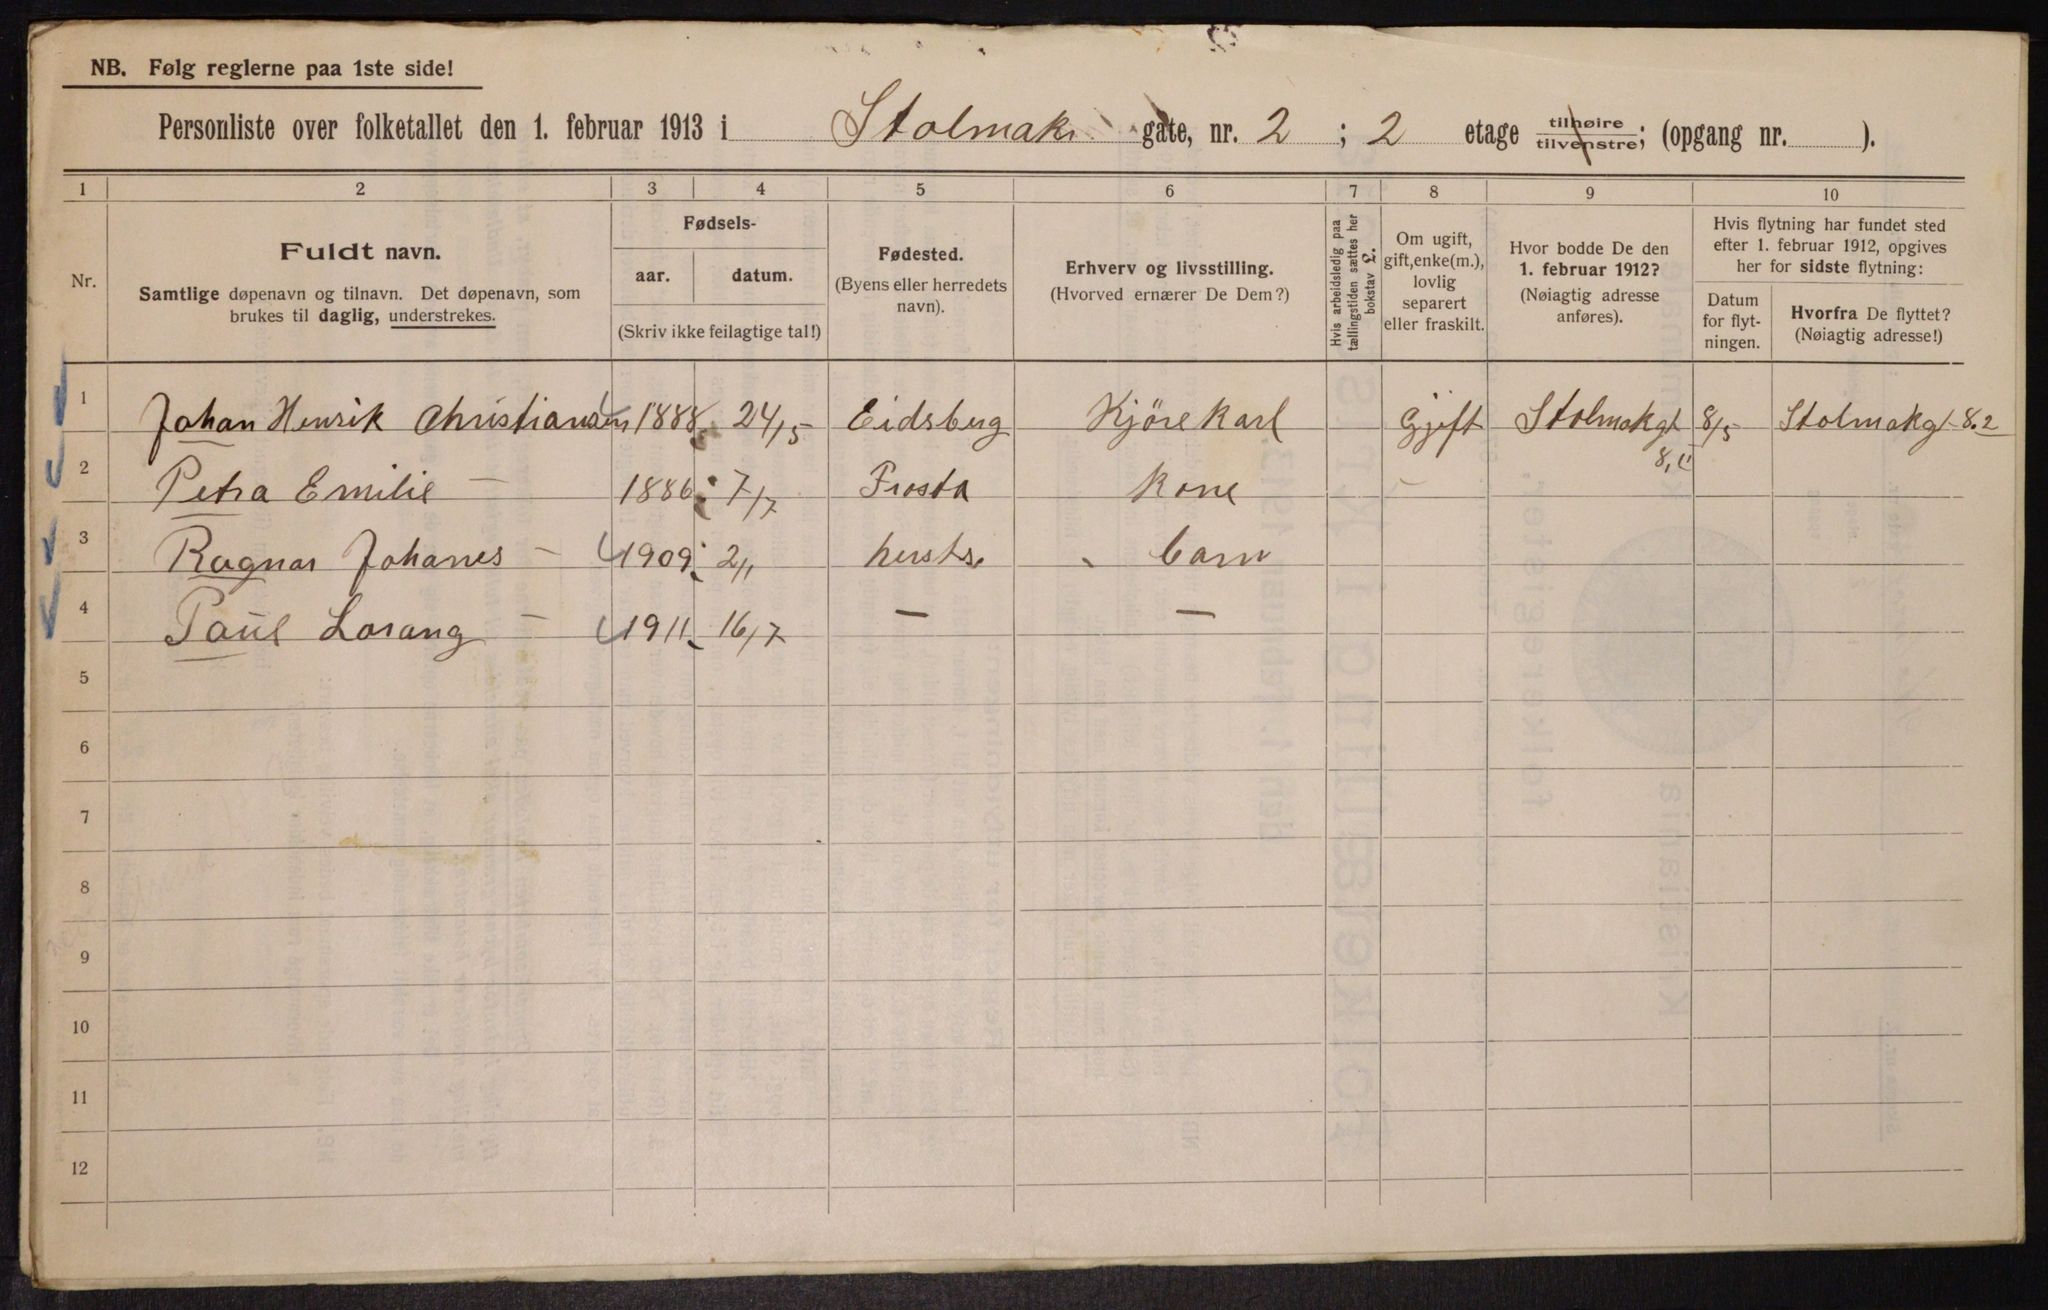 NB. Følg reglerne paa 1ste side!
Personliste over folketallet den 1. februar 1913 i Stolmak gate, nr. 2 ; 2 etage tilhøire tilvenstre; (opgang nr. ).
1 2 3 4 5 6 7 8 9 10
Nr.
Fuldt navn.
Samtlige døpenavn og tilnavn. Det døpenavn, som
brukes til daglig, understrekes.
Fødsels-
aar. datum.
(Skriv ikke feilagtige tal!)
Fødested.
(Byens eller herredets
navn).
Erhverv og livsstilling.
(Hvorved ernærer De Dem?)
Hvis arbeidsledig paa
tællingstiden sættes her
bokstav L.
Om ugift,
gift, enke(m.),
lovlig
separert
eller fraskilt.
Hvor bodde De den
1. februar 1912?
(Nøiagtig adresse
anføres).
Hvis flytning har fundet sted
efter 1. februar 1912, opgives
her for sidste flytning:
Datum
for flyt-
ningen.
Hvorfra De flyttet?
(Nøiagtig adresse!)
1 Johan Henrik Christiansen 1888 24/5 Eidsberg Kjörekarl Gjift Stolmakgt 8/5 Stolmakgt 8.2
2 Petra Emilie — 1886 7/7 Frosta Kone
3 Ragnar Johanes — 1909 2/1 herst. barn
4 Paul Lorang — 1911 16/7 — —
5
6
7
8
9
10
11
12